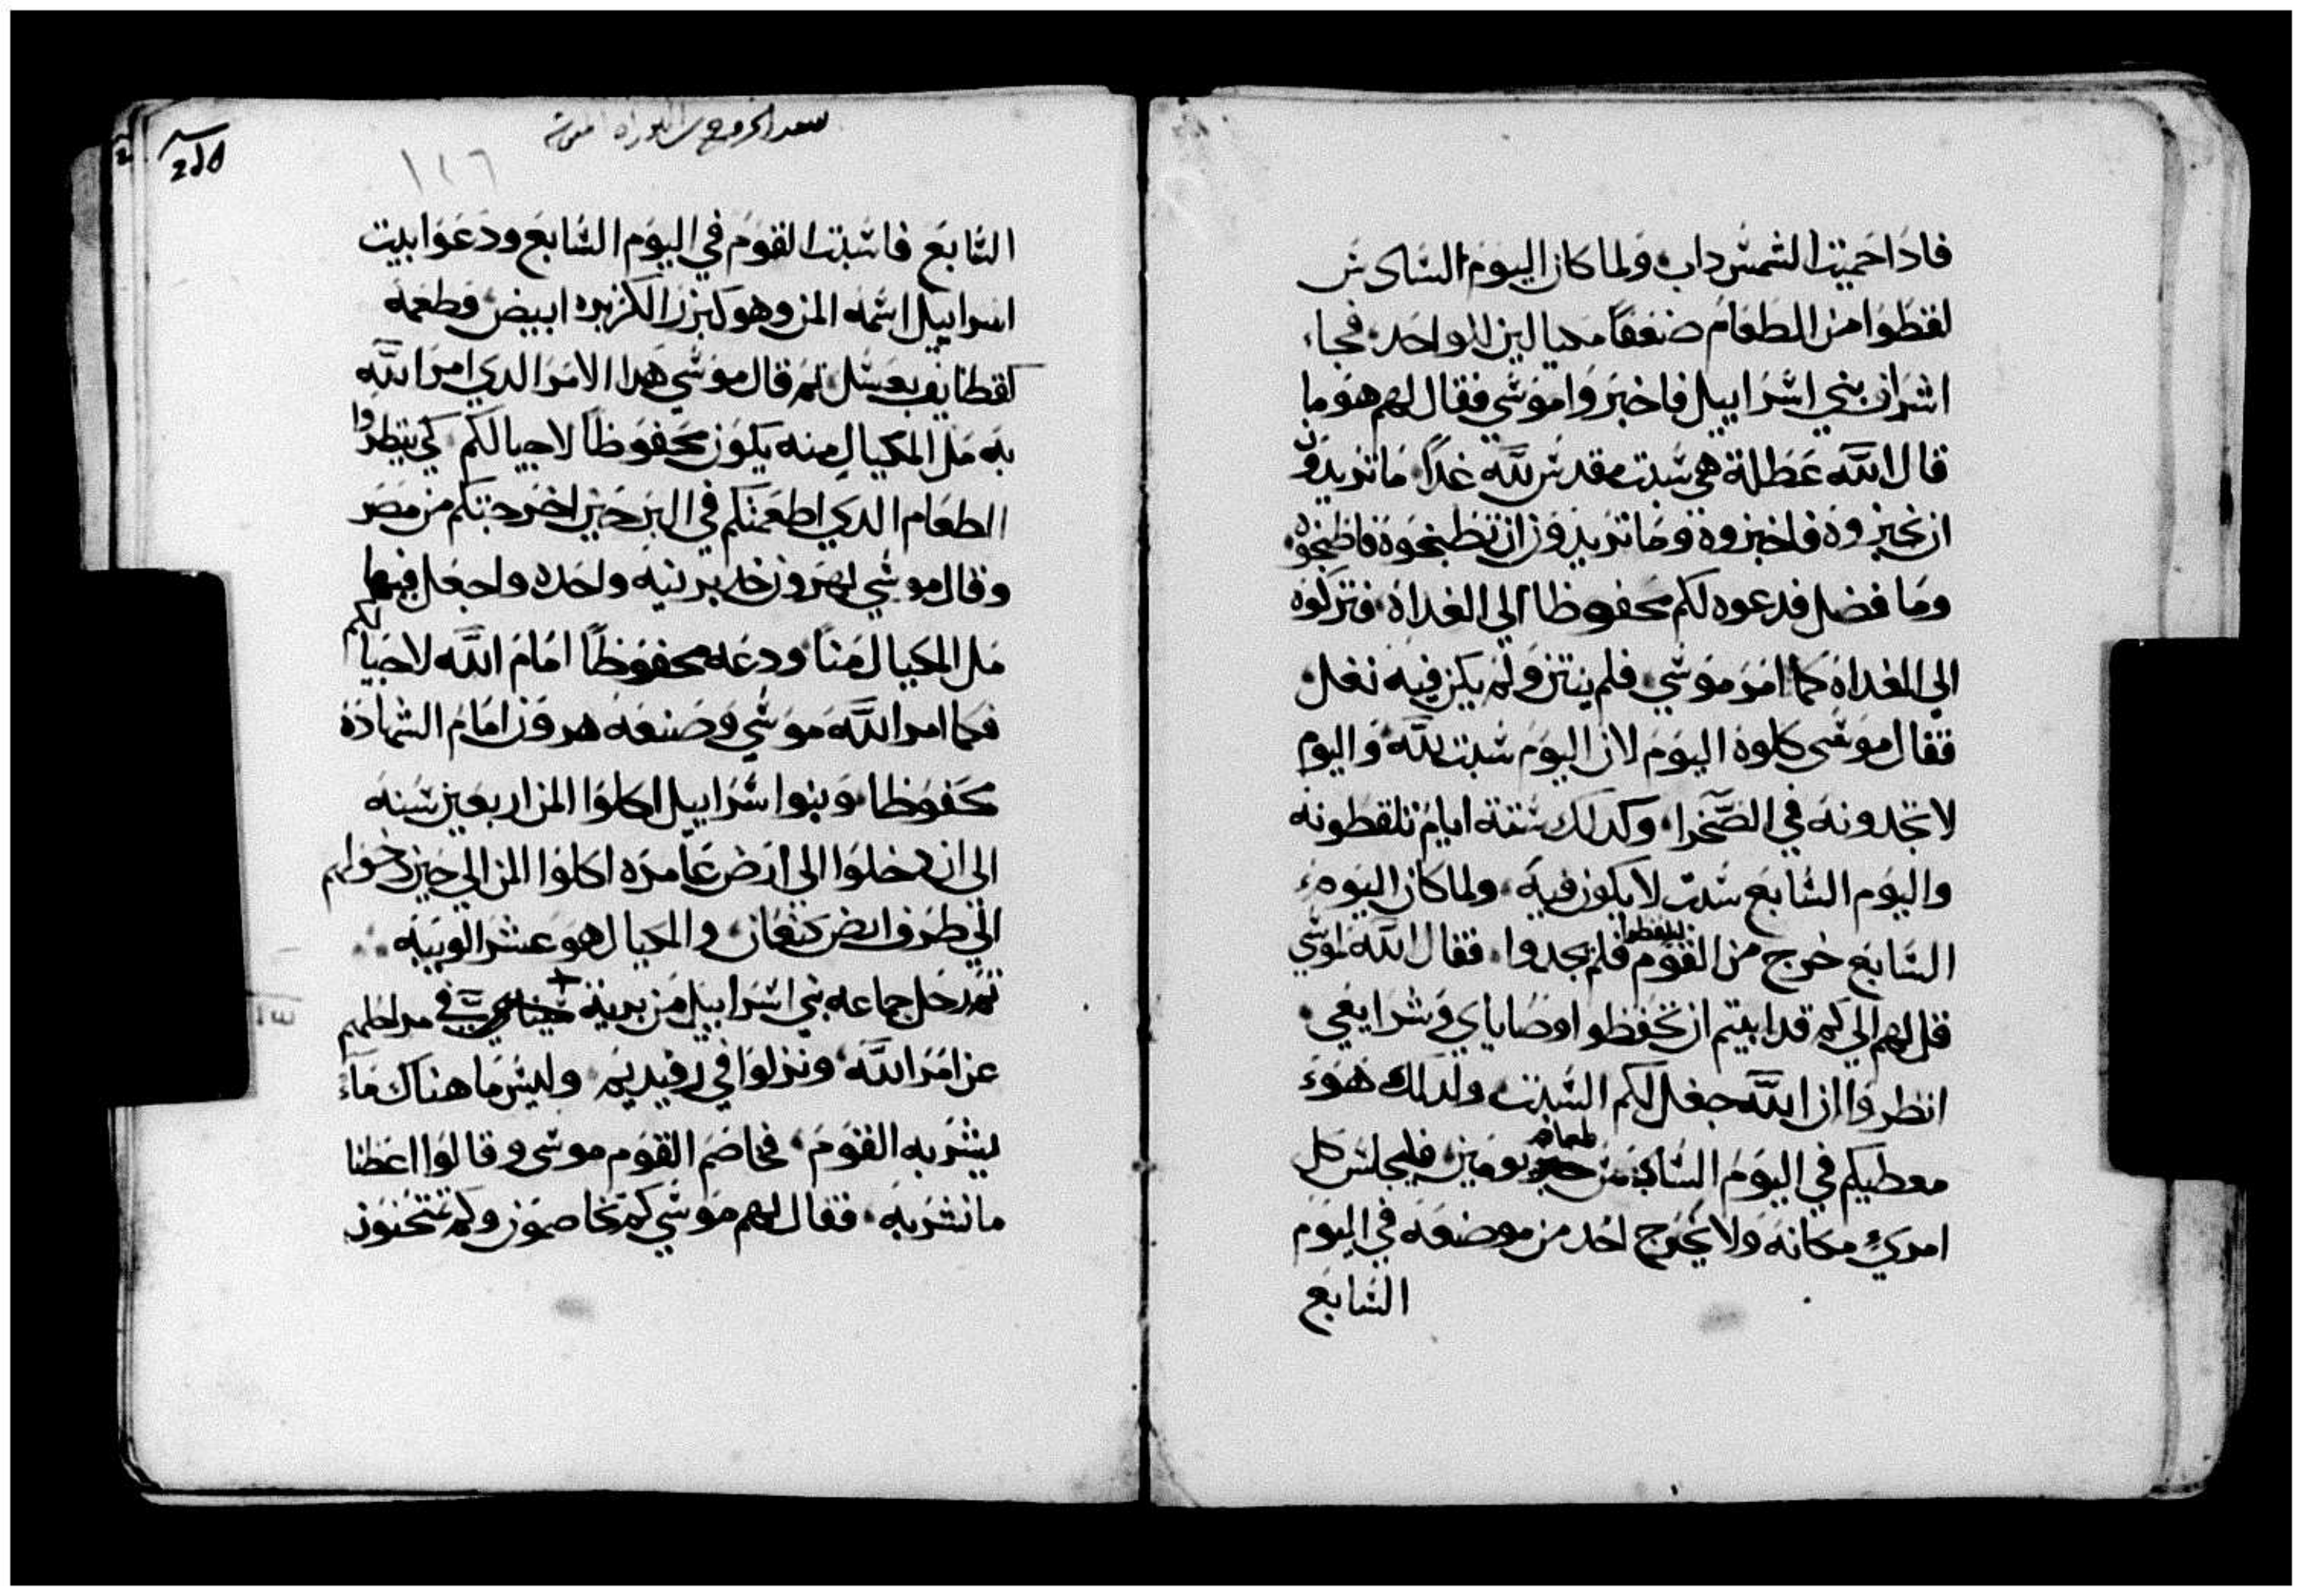 فاذا حميت الشمس داب ولما كان اليوم السادس
لقطوا من الطعام ضعفا مكيالين للواحد فجاء
اشراف بني اسراييل فاخبروا موسي فقال لهم هو ما
قال الله عطلة هي سبت مقدس لله غدا ما تريدون
ان تخبزوه فاخبزوه وما تريدون ان تطبخوه فاطبخوه
وما فضل فدعوه لكم محفوظا الي الغداه فتركوه
الي الغداه كما امر موسي فلم ينتن ولم يكن فيه نغل
فقال موسى كلوه اليوم لان اليوم سبت لله واليوم
لا تجدونه في الصحرا وكدلك ستة ايام تلقطونه
واليوم السابع سبت لا يكون فيه ولما كان اليوم
السابع خرج من القوم ليلقطوا فلم يجدوا فقال الله لموسي
قل لهم الي كم قد ابيتم ان تحفظوا وصاياي وشرايعي
انظروا ان الله جعل لكم السبت ولدلك هو
معطيكم في اليوم السادس طعام يومين فليجلس كل
امريء مكانه ولا يخرج احد من موضعه في اليوم
السابع
سفر الخروج من التوراه
١٢٦
السابع فاسبت القوم في اليوم السابع ودعوا بيت
اسراييل اسمه المن وهو كبزر الكزبره ابيض وطعمه
كقطايف بعسل ثم قال موسي هدا الامر الدي امر الله
به مل المكيال منه يكون محفوظا لاجيالكم كي ينظروا
الطعام الدي اطعمتكم في البر حين اخرجتكم من مصر
وقال موسي لهرون خد برنيه واحده واجعل فيها
مل المكيال منا ودعه محفوظا امام الله لاجيالكم
فكما امر الله موسي وضعه هرون امام الشهادة
محفوظا وبنوا اسراييل اكلوا المن اربعين سنه
الي ان دخلوا الي ارض عامره اكلوا المن الي حين دخولهم
الي طرف ارض كنعان والمكيال هو عشر الويبه
ثم رحل جماعه بني اسراييل من برية سين في مراحلهم
عن امر الله ونزلوا في رفيديم وليس ما هناك ماء
ليشربه القوم فخاصم القوم موسى وقالوا اعطنا
ما نشربه فقال لهم موسي كم تخاصمون وكم تمتحنون